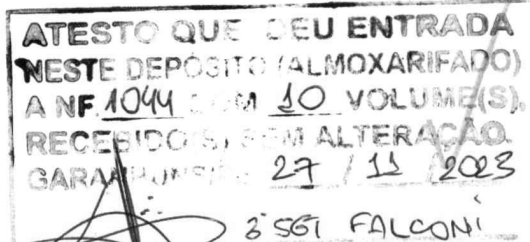 ATESTO QUE DEU ENTRADA
NESTE DEPÓSITO (ALMOXARIFADO)
A NF 1044 COM 10 VOLUME(S),
RECEBIDO(S) SEM ALTERAÇÃO.
GARANHUNS 27 / 11 / 2023
3º SGT FALCONI